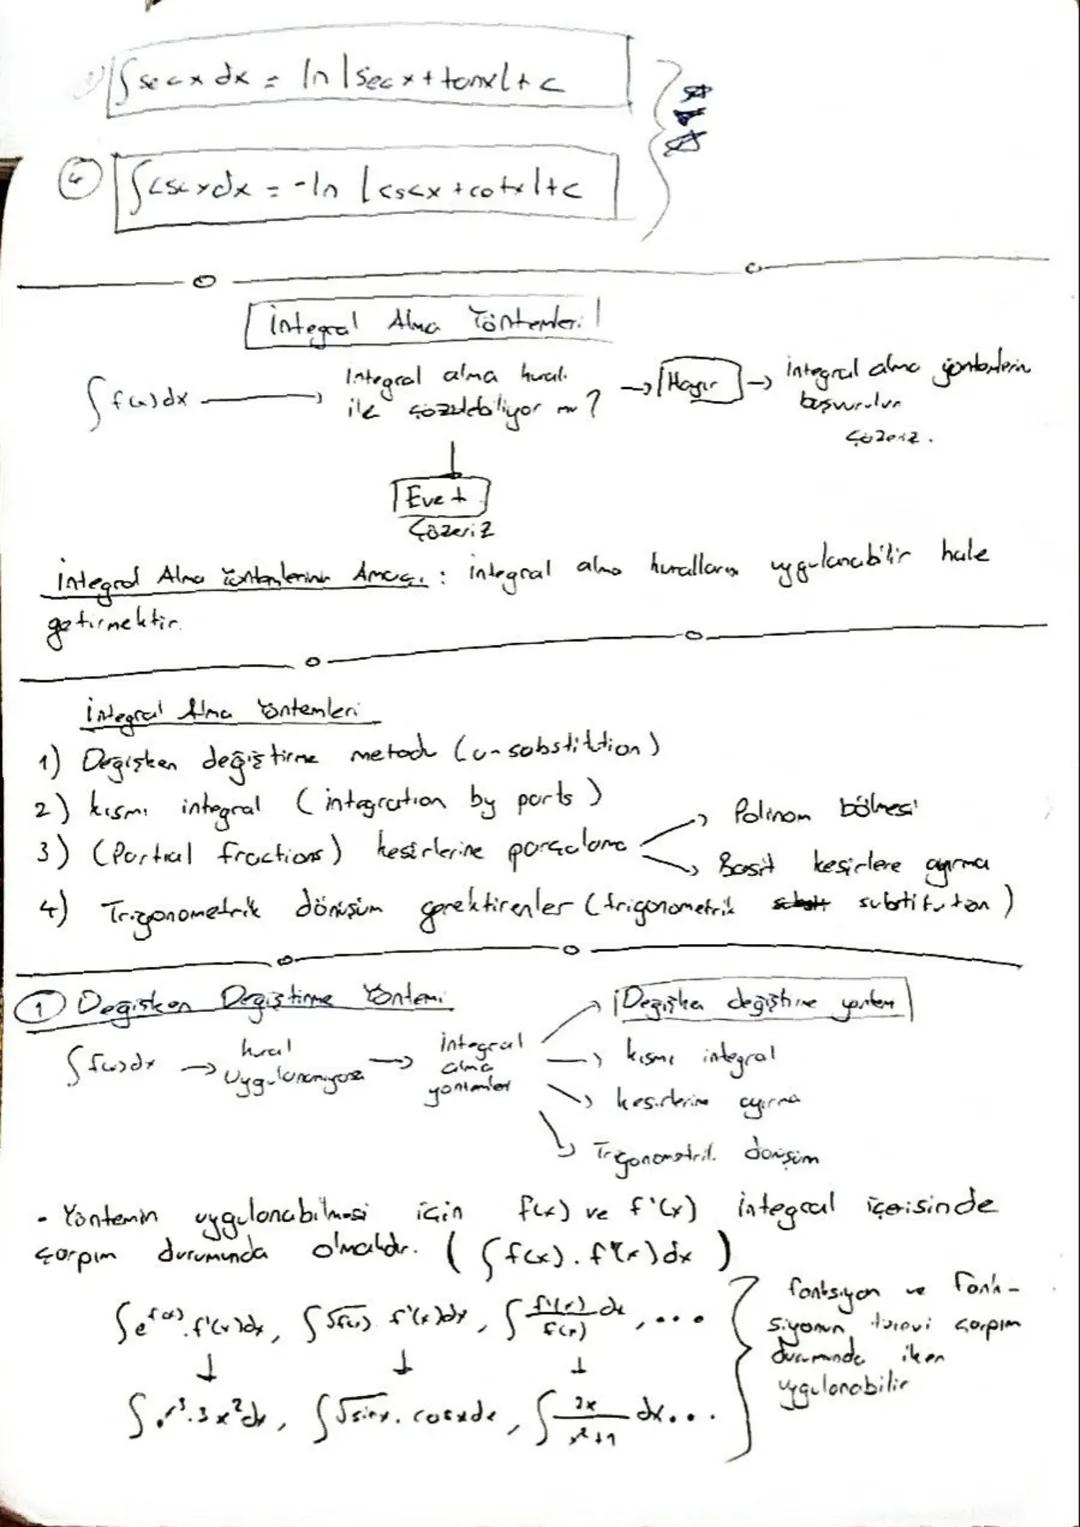 ∫ sec x dx = ln |sec x + tan x| + c
④ ∫ csc x dx = -ln |csc x + cot x| + c
İntegral Alma Yöntemleri
∫ f(x) dx → integral alma kuralı ile çözülebiliyor mu? → Hayır → integral alma yöntemlerin başvurulur çözeriz.
↓
Evet
Çözeriz
İntegral Alma Yöntemlerinin Amacı : integral alma kurallarını uygulanabilir hale
getirmektir.
İntegral Alma Yöntemleri
1) Değişken değiştirme metodu (u-substitution)
2) kısmi integral (integration by parts)
3) (Partial fractions) kesirlerine parçalama → Polinom bölmesi
→ Basit kesirlere ayırma
4) Trigonometrik dönüşüm gerektirenler (trigonometrik substitution)
① Değişken Değiştirme Yöntemi
∫ f(x) dx → kural uygulanamıyorsa → integral alma yöntemler → Değişken değiştirme yöntem
→ kısmi integral
→ kesirlerine ayırma
→ Trigonometrik dönüşüm
- Yöntemin uygulanabilmesi için f(x) ve f'(x) integral içerisinde
çarpım durumunda olmalıdır. (∫ f(x) . f'(x) dx)
∫ e^f(x) . f'(x) dx, ∫ √f(x) . f'(x) dx, ∫ f'(x)/f(x) dx, ...
↓ ↓ ↓
∫ e^x³ . 3x² dx, ∫ √sin x . cos x dx, ∫ 2x/(x²+1) dx ...
fonksiyon ve fonk-
siyonun türevi çarpım
durumunda iken
uygulanabilir